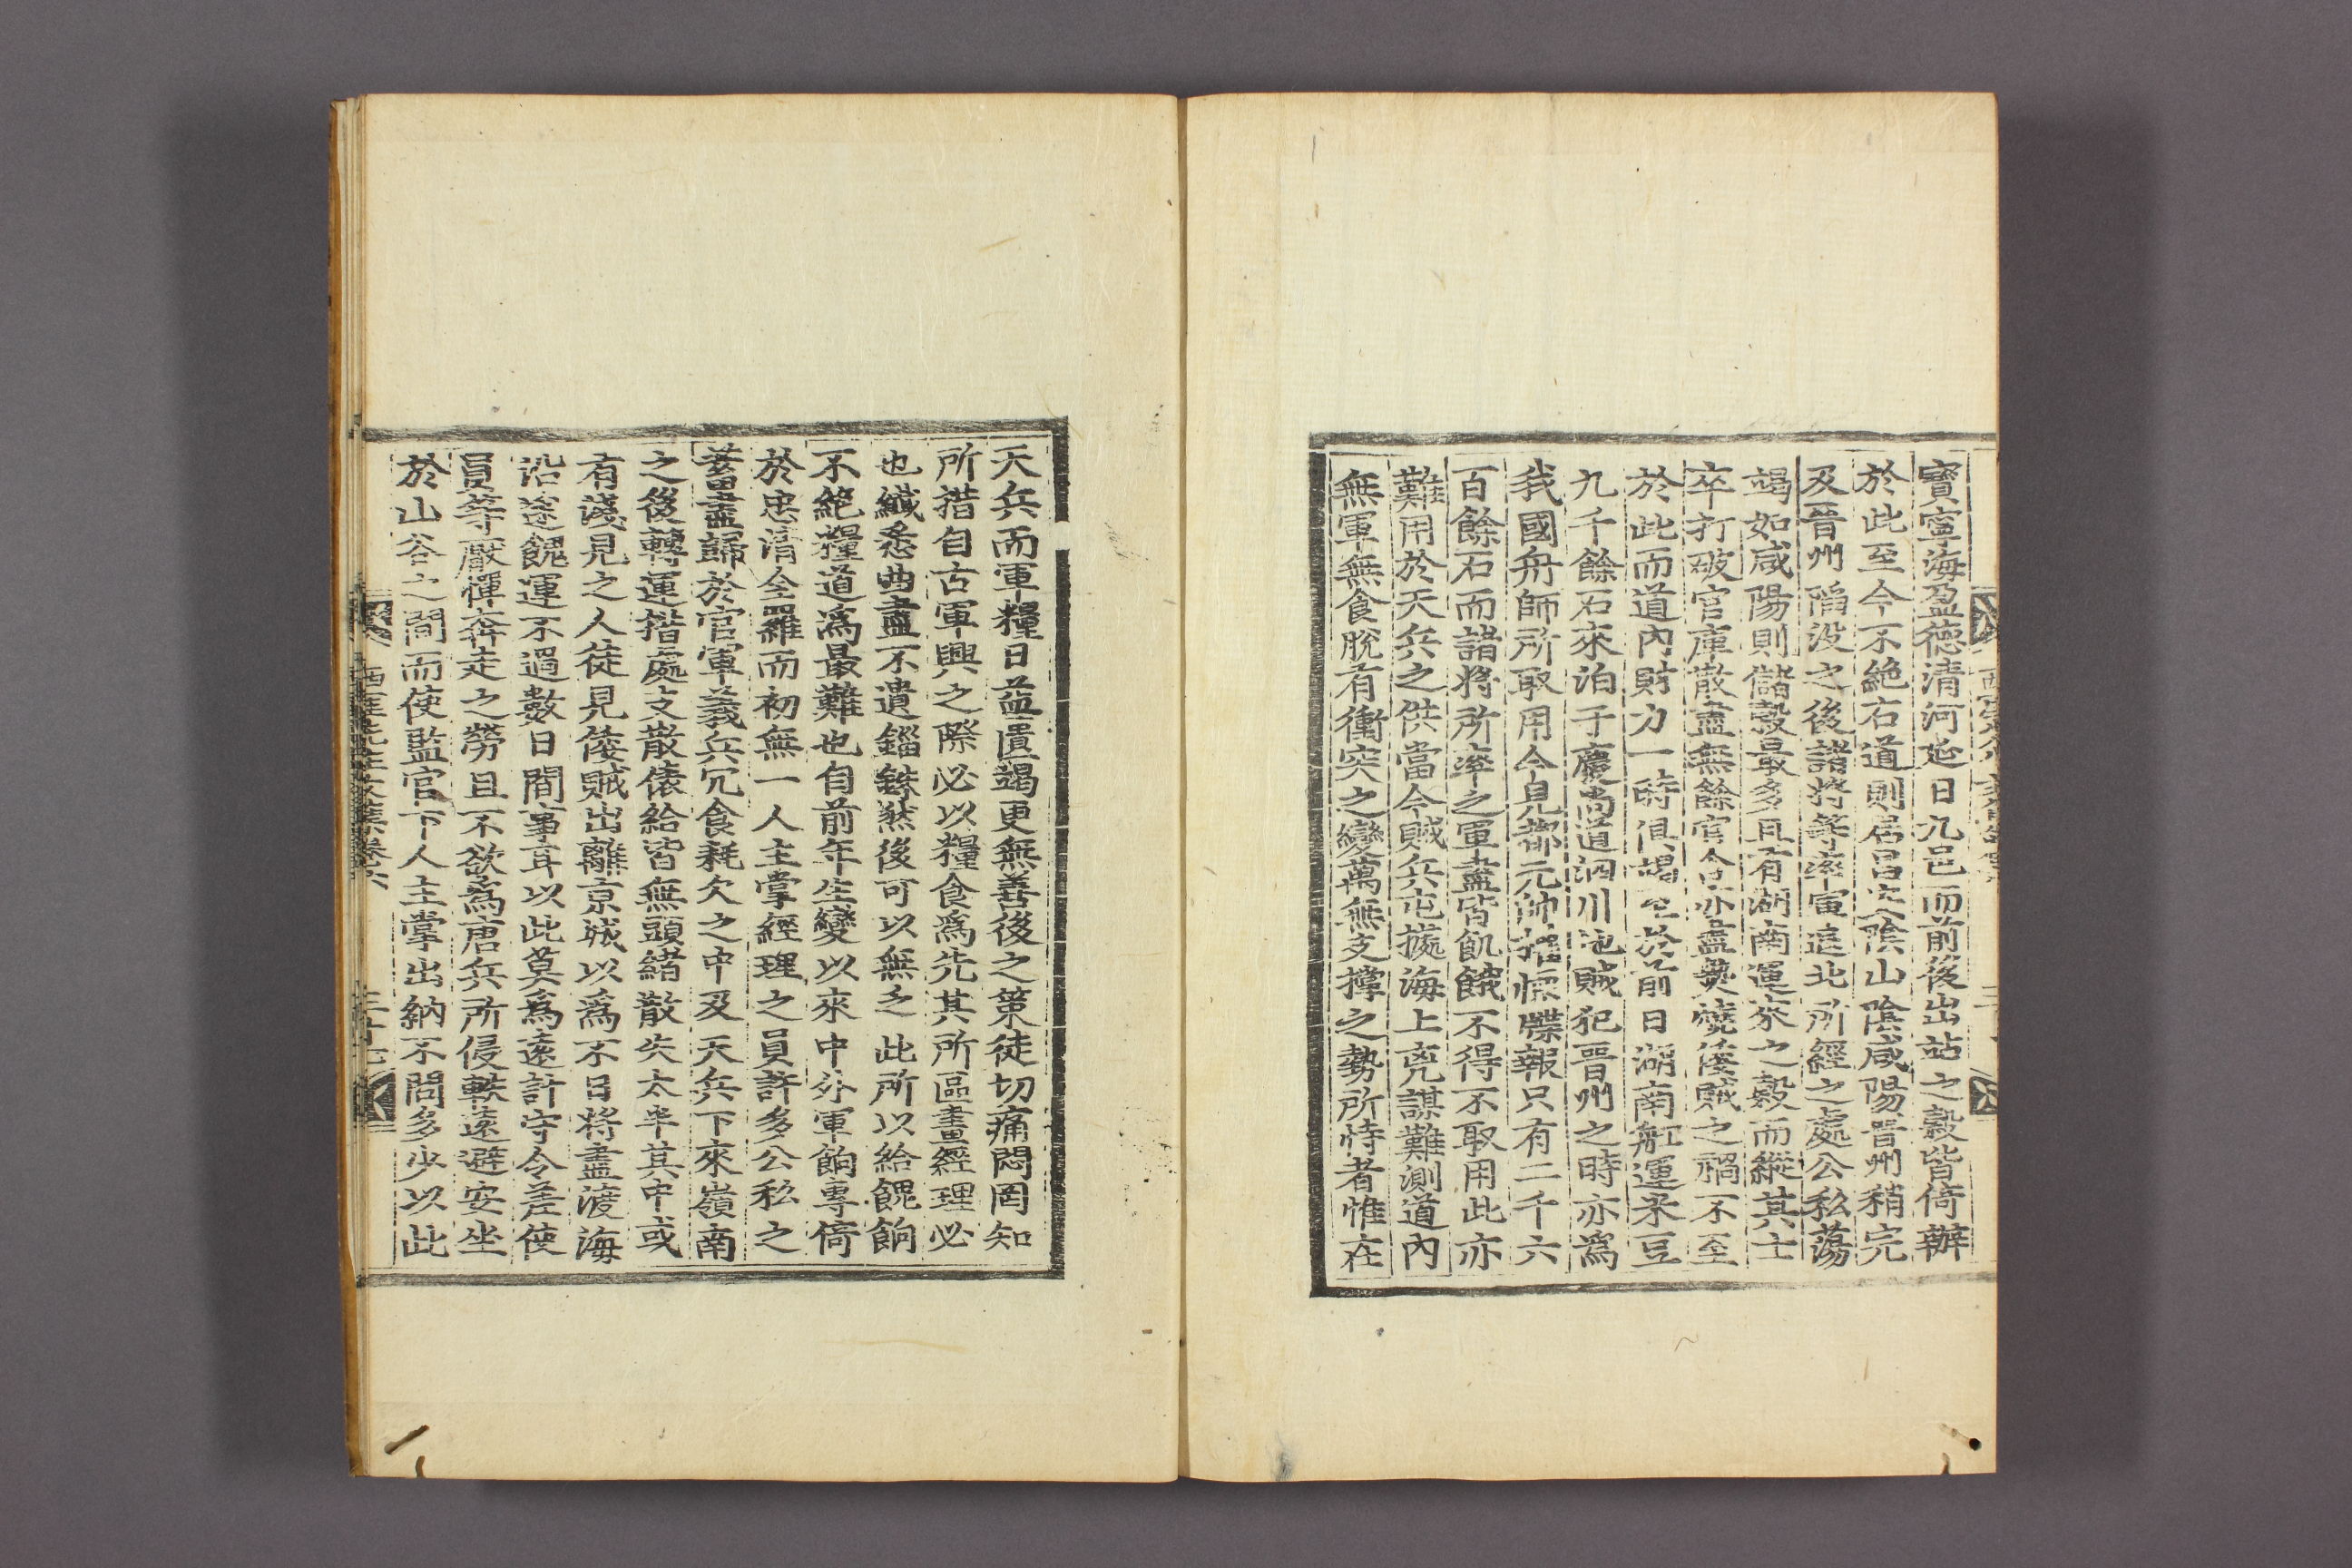 寶寧海盈德清河延日九邑而前後出站之穀皆倚辦
於此至今不絶右道則居昌安陰山陰咸陽晋州稍完
及晋州陷没之後諸將等率軍退北所經之處公私蕩
竭如咸陽則儲穀最多且有湖南運來之穀而縱其士
卒打破官庫散盡無餘官舍亦盡爇燒倭賊之禍不至
於此而道內財力一時俱竭至於前日湖南舡運米豆
九千餘石來泊于慶尚道泗川地賊犯晋州之時亦爲
我國舟師所取用今見都元帥權慄牒報只有二千六
百餘石而諸將所率之軍盡皆飢餓不得不取用此亦
難用於天兵之供當今賊兵屯據海上兇謀難測道內
無軍無食脫有衝突之變萬無支撑之勢所恃者惟在
天兵而軍糧日益匱竭更無善後之策徒切痛悶罔知
所措自古軍興之際必以糧食爲先其所區畫經理必
也纎悉曲盡不遺錙銖然後可以無乏此所以給餽餉
不絶糧道爲最難也自前年生變以來中外軍餉專倚
於忠清全羅而初無一人主掌經理之員許多公私之
蓄盡歸於官軍義兵冗食耗欠之中及天兵下來嶺南
之後轉運措處支散俵給皆無頭緒散失太半其中或
有淺見之人徒見倭賊出離京城以爲不日將盡渡海
沿途餽運不過數日間事耳以此莫爲遠計守令差使
員等厭憚奔走之勞且不欲爲唐兵所侵軼遠避安坐
於山谷之間而使監官下人主掌出納不問多少以此
西厓先生文集卷六